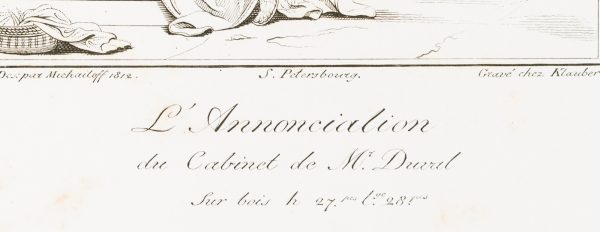 Des: par Michailoff 1812. S. Pétersbourg. Gravé chez Klauber
L'Annonciation
du Cabinet de Mr. Duval
Sur bois h 27. pces l.ge 28 pces